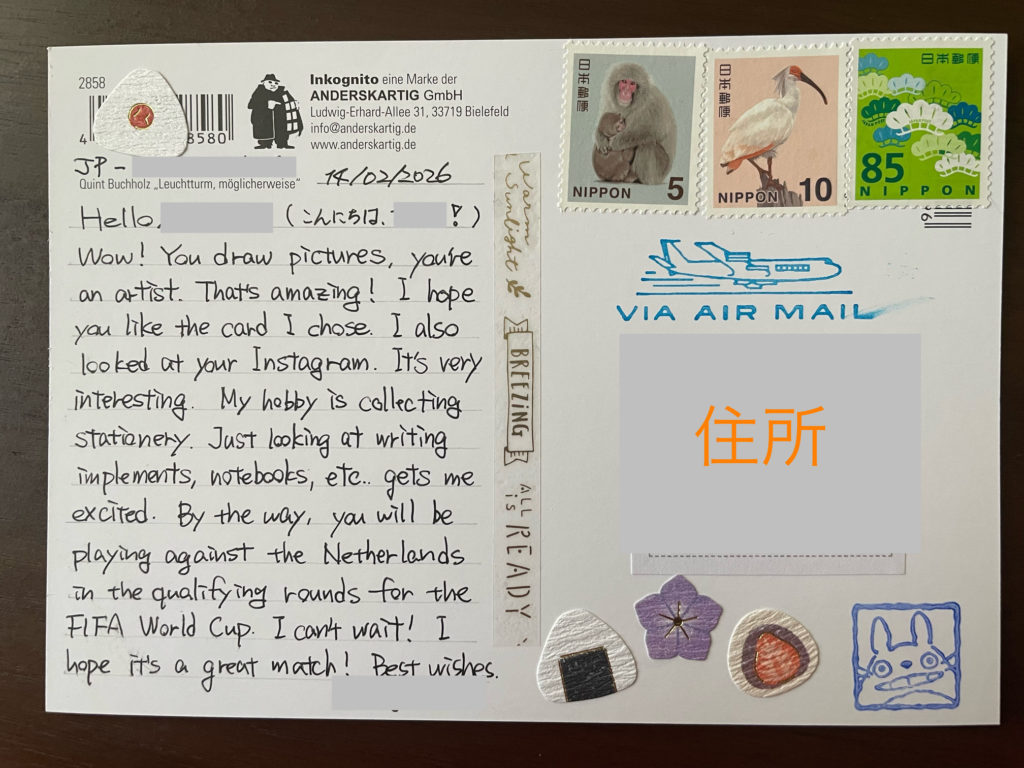 2858
4
8580
Inkognito eine Marke der
ANDERSKARTIG GmbH
Ludwig-Erhard-Allee 31, 33719 Bielefeld
info@anderskartig.de
www.anderskartig.de
JP-
Quint Buchholz „Leuchtturm, möglicherweise"
14/02/2026
Hello, (こんにちは、!)
Wow! You draw pictures, you're
an artist. That's amazing! I hope
you like the card I chose. I also
looked at your Instagram. It's very
interesting. My hobby is collecting
stationery. Just looking at writing
implements, notebooks, etc.. gets me
excited. By the way, you will be
playing against the Netherlands
in the qualifying rounds for the
FIFA World Cup. I can't wait! I
hope it's a great match! Best wishes.
Warm
Sunlight
BREEZING
ALL
is
READY
日本郵便
NIPPON 5
日本郵便
NIPPON 10
日本郵便
85
NIPPON
VIA AIR MAIL
住所